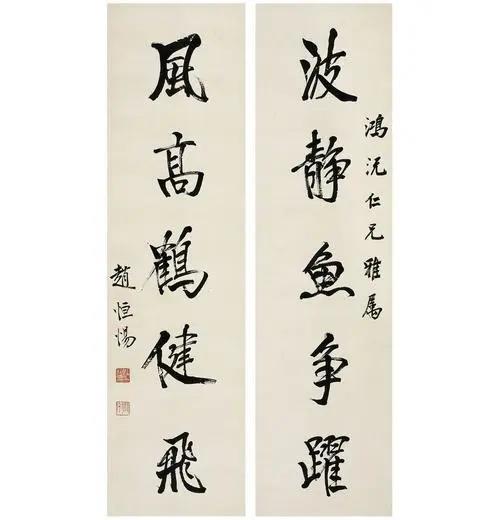 鴻沅仁兄雅属
波靜魚争躍
風髙鶴健飛
趙恒惕